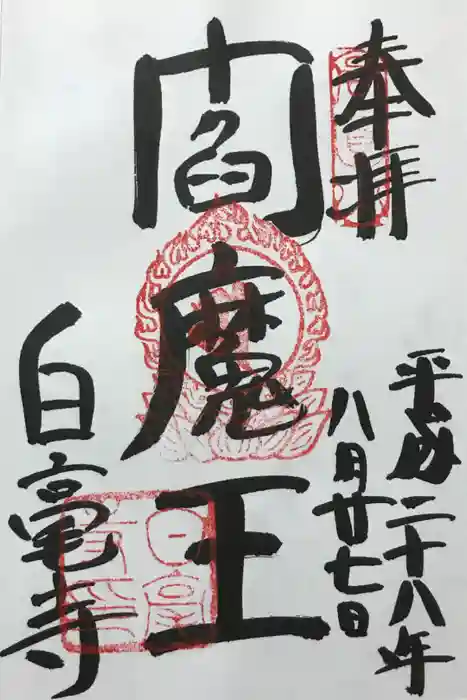 奉拝
平成二十八年
八月廿七日
閻魔王
白毫寺